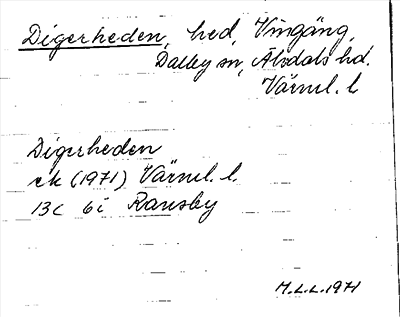 Digerheden, hed, Vingäng,
Dalby sn, Älvdals hd.
Värml. l
Digerheden
ek (1971) Värml. l.
13C 6i Ransby
M.L.L. 1971